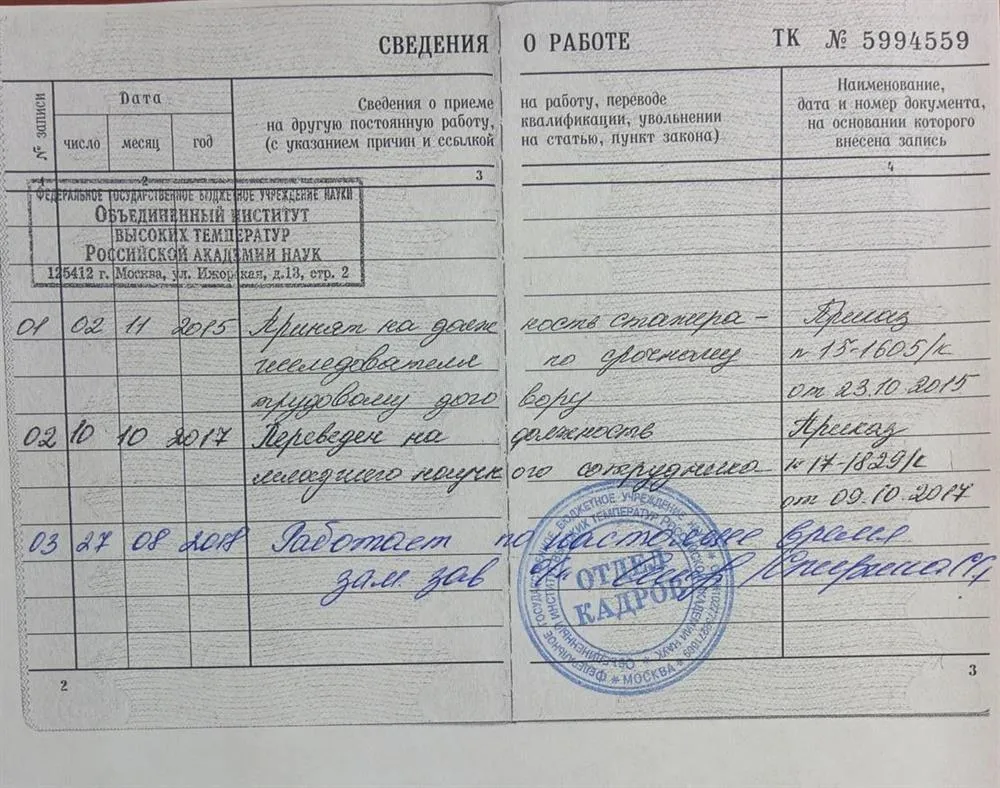 СВЕДЕНИЯ О РАБОТЕ ТК № 5994559
№ записи
Дата
число месяц год
Сведения о приеме на работу, переводе
на другую постоянную работу, квалификации, увольнении
(с указанием причин и ссылкой на статью, пункт закона)
Наименование,
дата и номер документа,
на основании которого
внесена запись
1 2 3 4
ФЕДЕРАЛЬНОЕ ГОСУДАРСТВЕННОЕ БЮДЖЕТНОЕ УЧРЕЖДЕНИЕ НАУКИ
ОБЪЕДИНЕННЫЙ ИНСТИТУТ
ВЫСОКИХ ТЕМПЕРАТУР
РОССИЙСКОЙ АКАДЕМИИ НАУК
125412 г. Москва, ул. Ижорская, д.13, стр. 2
01 02 11 2015 Принят на должность стажера- Приказ
исследователя по срочному n 15-1605/к
трудовому договору от 23.10.2015
02 10 10 2017 Переведен на должность Приказ
младшего научного сотрудника n 17-1829/к
от 09.10.2017
03 27 08 2018 Работает по настоящее время
зам. зав
ОТДЕЛ
КАДРОВ
* МОСКВА *
2 3